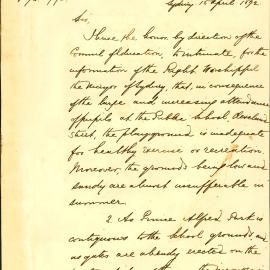 Sydney 15 April 1892.
Sir,
I have the honor, by direction of the
Council of Education, to intimate, for the
information of the Right Worshipful
the Mayor of Sydney, that, in consequence
of the large and increasing attendance
of pupils at the Public School, Cleveland
Street, the playground is inadequate
for healthy exercise or recreation.
Moreover, the grounds being low and
sandy are almost insufferable in
summer.
2. As Prince Alfred Park is
contiguous to the School grounds and
as gates are already erected on the